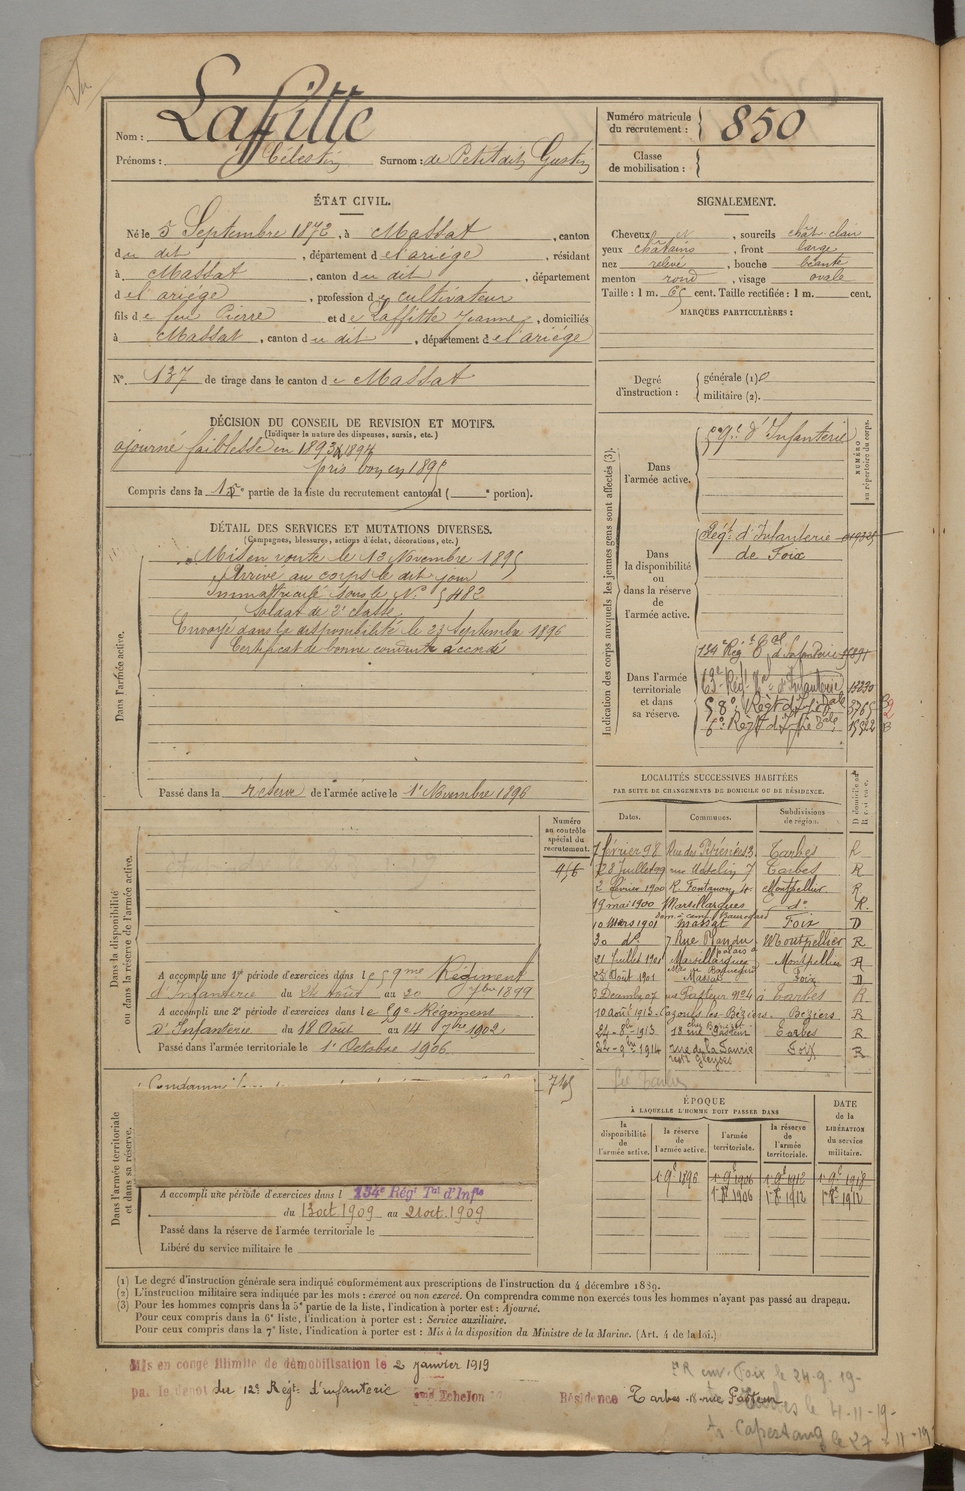 Vu
Nom : Lafitte
Prénoms : Célestin Surnom : de Petit dit Gustin
Numéro matricule du recrutement : 850
Classe de mobilisation :
ÉTAT CIVIL.
Né le 5 Septembre 1872, à Massat, canton
du dit, département de l'ariége, résidant
à Massat, canton du dit, département
de l'ariége, profession de cultivateur
fils de feu Pierre et de Laffitte Jeanne, domiciliés
à Massat, canton du dit, département de l'ariége
N° 137 de tirage dans le canton de Massat
SIGNALEMENT.
Cheveux et, sourcils chât clair
yeux châtains, front large
nez relevé, bouche béante
menton rond, visage ovale
Taille : 1 m. 65 cent. Taille rectifiée : 1 m. cent.
MARQUES PARTICULIÈRES :
Degré d'instruction : générale (1) 0
militaire (2).
DÉCISION DU CONSEIL DE REVISION ET MOTIFS.
(Indiquer la nature des dispenses, sursis, etc.)
ajourné faiblesse en 1893 & 1894
pris bon en 1895
Compris dans la 1e partie de la liste du recrutement cantonal ( e portion).
DÉTAIL DES SERVICES ET MUTATIONS DIVERSES.
(Campagnes, blessures, actions d'éclat, décorations, etc.)
Dans l'armée active.
Mis en route le 13 Novembre 1895
Arrivé au corps le dit jour
Immatriculé sous le N° 5482
Soldat de 2e classe
Envoyé dans la disponibilité le 23 Septembre 1896
Certificat de bonne conduite accordé
Passé dans la réserve de l'armée active le 1er Novembre 1896
Indication des corps auxquels les jeunes gens sont affectés (3).
NUMÉRO au répertoire du corps.
Dans l'armée active.
59e d'Infanterie
Dans la disponibilité ou dans la réserve de l'armée active.
Régt d'Infanterie
de Foix
Dans l'armée territoriale et dans sa réserve.
134e Régt Tal d'Infanterie
58e Régt d'Iie Dale 3765
6e Régt d'Iie Dale
LOCALITÉS SUCCESSIVES HABITÉES
PAR SUITE DE CHANGEMENTS DE DOMICILE OU DE RÉSIDENCE.
Dates. Communes. Subdivisions de région. D domicile ou R résidence.
7 février 98 Rue des Pyrénées 13 Tarbes R
28 Juillet 99 7 Tarbes R
2 février 1900 R. Fontanon 4 Montpellier R
19 mai 1900 Marsillargues do R
10 Mars 1901 Massat Foix D
30 do 7 Rue Montpellier R
21 Juillet 1901 Marsillargues Montpellier R
25 Août 1901 Massat Foix D
3 Décemb 07 rue Pasteur à Tarbes R
10 août 1913 Cazouls-les-Béziers Béziers R
24 - 8bre - 1913 18 rue Pasteur Tarbes R
24 - 9bre 1914 Foix R
Dans la disponibilité ou dans la réserve de l'armée active.
Numéro au contrôle spécial du recrutement.
956
A accompli une 1re période d'exercices dans le 59me Régiment
d'Infanterie du 24 août au 20 7bre 1899
A accompli une 2e période d'exercices dans le 59e Régiment
d'Infanterie du 18 Août au 14 7bre 1902
Passé dans l'armée territoriale le 1er Octobre 1906
Dans l'armée territoriale et dans sa réserve.
Condamné
745
A accompli une période d'exercices dans l 134e Régt Tal d'Infie
du 13 oct. 1909 au 21 oct. 1909
Passé dans la réserve de l'armée territoriale le
Libéré du service militaire le
ÉPOQUE
À LAQUELLE L'HOMME DOIT PASSER DANS
la disponibilité de l'armée active. la réserve de l'armée active. l'armée territoriale. la réserve de l'armée territoriale.
DATE de la LIBÉRATION du service militaire.
1er 9e 1896 1er 9e 1906 1er 9e 1912 1er 9e 1918
1er 8e 1906 1er 8e 1912 1er 8e 1912
(1) Le degré d'instruction générale sera indiqué conformément aux prescriptions de l'instruction du 4 décembre 1889.
(2) L'instruction militaire sera indiquée par les mots : exercé ou non exercé. On comprendra comme non exercés tous les hommes n'ayant pas passé au drapeau.
(3) Pour les hommes compris dans la 5e partie de la liste, l'indication à porter est : Ajourné.
Pour ceux compris dans la 6e liste, l'indication à porter est : Service auxiliaire.
Pour ceux compris dans la 7e liste, l'indication à porter est : Mis à la disposition du Ministre de la Marine. (Art. 4 de la loi.)
Mis en congé illimité de démobilisation le 2 janvier 1919
par le dépôt du 12e Régt d'infanterie Echelon
Résidence Tarbes 18 rue Pasteur
Foix le 24-9-19-
Tarbes le 4-11-19-
Capestang le 27-11-19